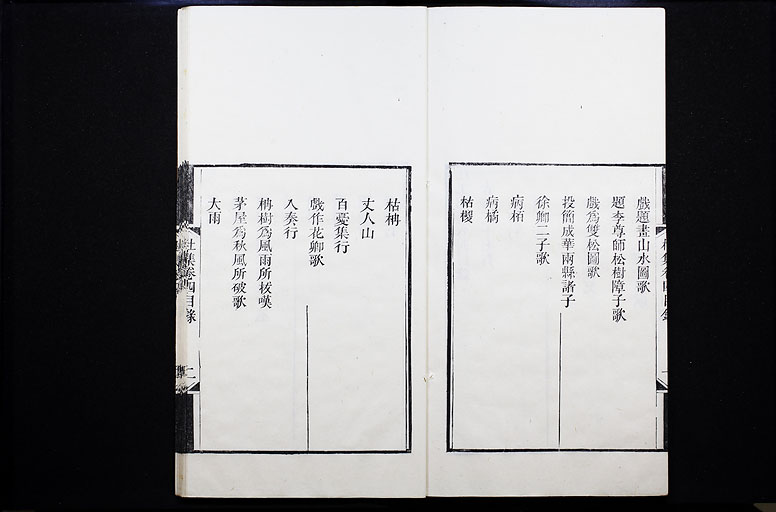 戲題畫山水圖歌
題李尊師松樹障子歌
戲為雙松圖歌
投簡成華兩縣諸子
徐卿二子歌
病栢
病橘
枯椶
枯柟
丈人山
百憂集行
戲作花卿歌
入奏行
柟樹為風雨所拔嘆
茅屋為秋風所破歌
大雨
杜集卷四目錄
二